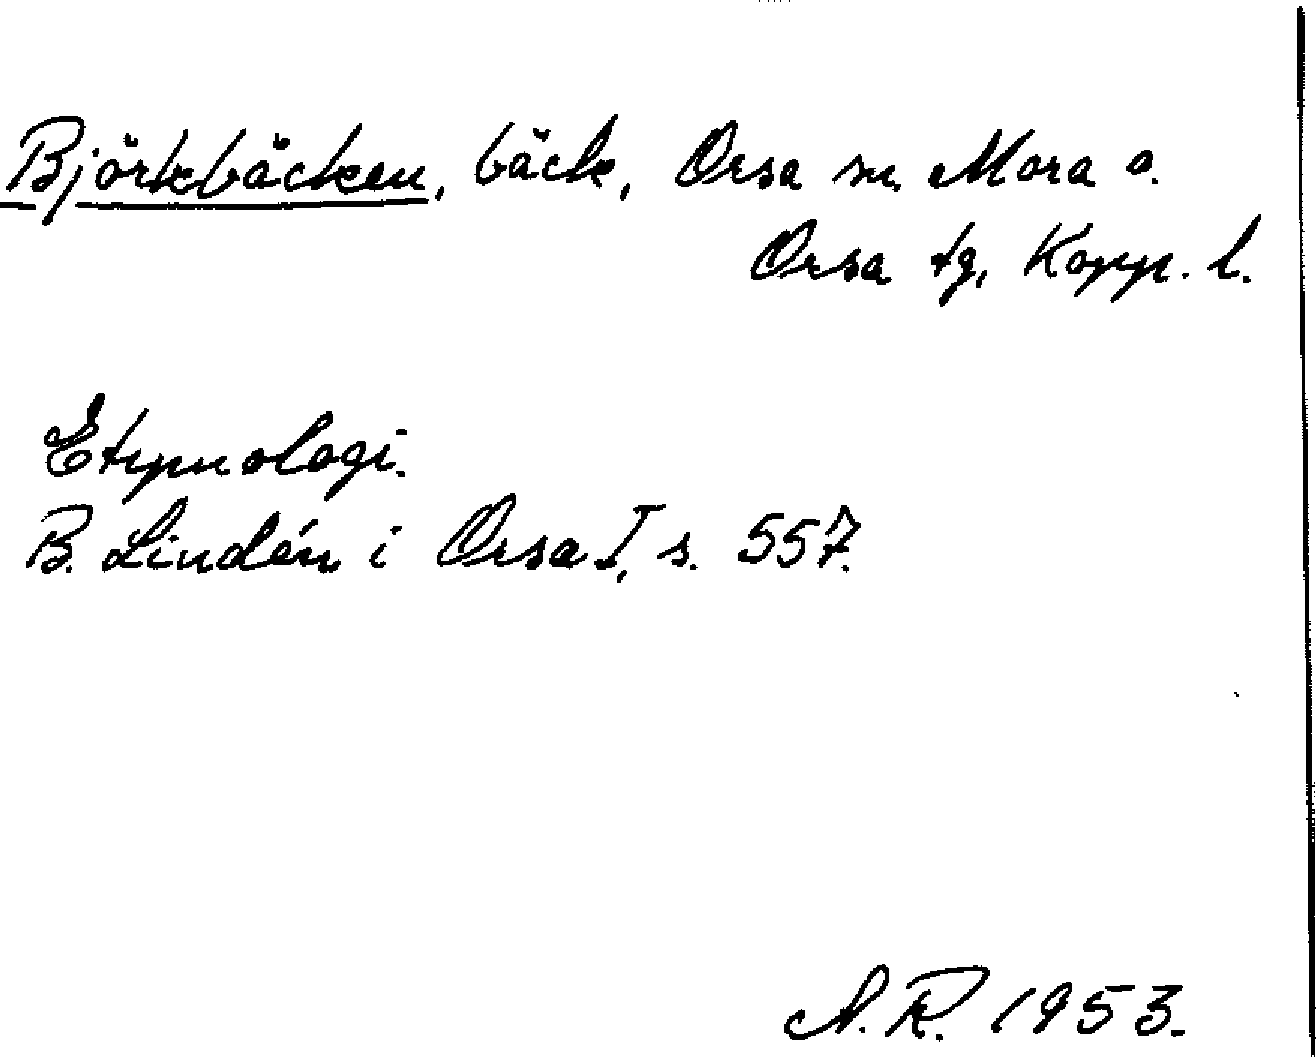 Björkbäcken, bäck, Orsa sn. Mora o.
Orsa tg, Kopp. l.
Etymologi.
B. Lindén i Orsa I, s. 557.
A.R. 1953.